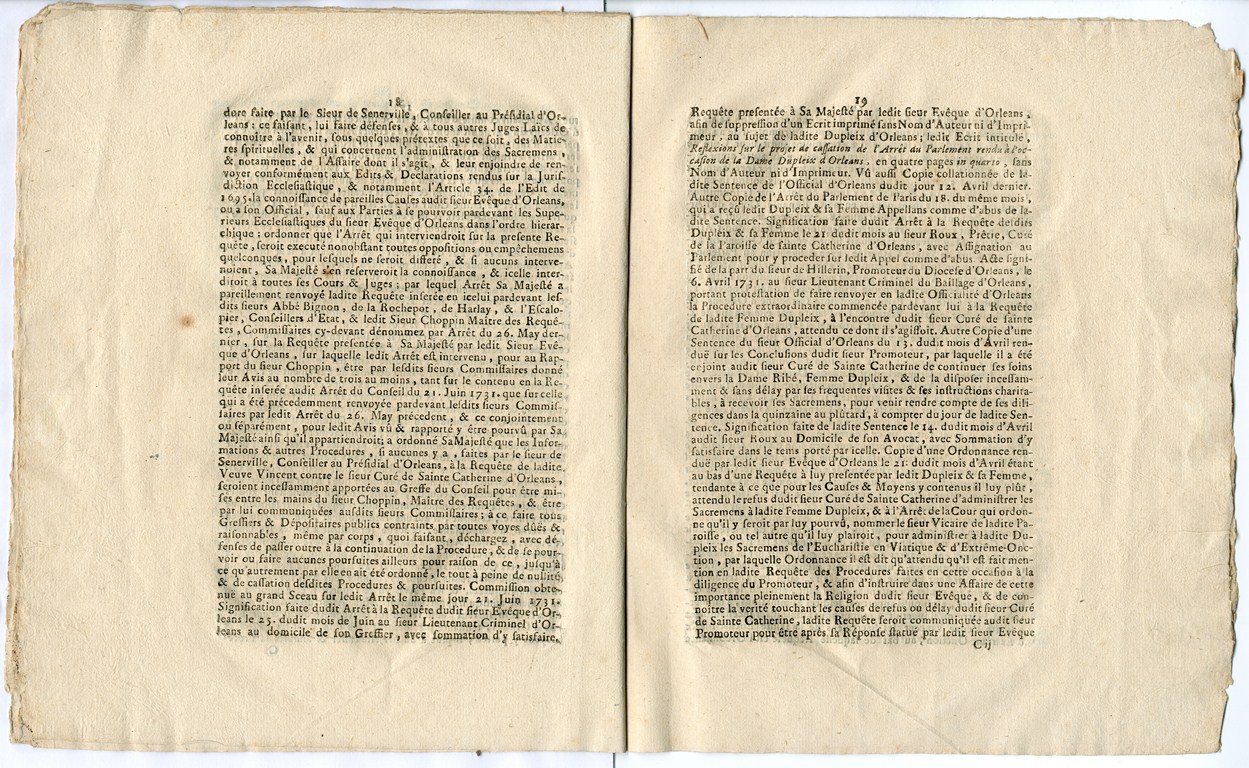 18
dore faire par le Sieur de Senerville, Conseiller au Présidial d'Or-
leans: ce faisant, lui faire défenses, & à tous autres Juges Laïcs de
connoître à l'avenir, sous quelques prétextes que ce soit, des Matie-
res spirituelles, & qui concernent l'administration des Sacremens,
& notamment de l'Affaire dont il s'agit, & leur enjoindre de ren-
voyer conformément aux Edits & Declarations rendus sur la Juris-
diction Ecclesiastique, & notamment l'Article 34. de l'Edit de
1695. la connoissance de pareilles Causes audit sieur Evêque d'Orleans,
ou à son Official, sauf aux Parties à se pourvoir pardevant les Supe-
rieurs Ecclesiastiques du sieur Evêque d'Orleans dans l'ordre hierar-
chique: ordonner que l'Arrêt qui interviendroit sur la presente Re-
quête, seroit executé nonobstant toutes oppositions ou empêchemens
quelconques, pour lesquels ne seroit differé, & si aucuns interve-
noient, Sa Majesté s'en reserveroit la connoissance, & icelle inter-
diroit à toutes ses Cours & Juges; par lequel Arrêt Sa Majesté a
pareillement renvoyé ladite Requête inserée en icelui pardevant les-
dits sieurs Abbé Bignon, de la Rochepot, de Harlay, & l'Escalo-
pier, Conseillers d'Etat, & ledit Sieur Choppin Maître des Requê-
tes, Commissaires cy-devant dénommez par Arrêt du 26. May der-
nier, sur la Requête presentée à Sa Majesté par ledit Sieur Evê-
que d'Orleans, sur laquelle ledit Arrêt est intervenu, pour au Rap-
port du sieur Choppin, être par lesdits sieurs Commissaires donné
leur Avis au nombre de trois au moins, tant sur le contenu en la Re-
quête inserée audit Arrêt du Conseil du 21. Juin 1731. que sur celle
qui a été précedemment renvoyée pardevant lesdits sieurs Commis-
saires par ledit Arrêt du 26. May précedent, & ce conjointement
ou séparément, pour ledit Avis vû & rapporté y être pourvû par Sa
Majesté ainsi qu'il appartiendroit; a ordonné Sa Majesté que les Infor-
mations & autres Procedures, si aucunes y a, faites par le sieur de
Senerville, Conseiller au Présidial d'Orleans, à la Requête de ladite
Veuve Vincent contre le sieur Curé de Sainte Catherine d'Orleans,
seroient incessamment apportées au Greffe du Conseil pour être mi-
ses entre les mains du sieur Choppin, Maître des Requêtes, & être
par lui communiquées ausdits sieurs Commissaires; à ce faire tous
Greffiers & Dépositaires publics contraints par toutes voyes dûës &
raisonnables, même par corps, quoi faisant, déchargez, avec dé-
fenses de passer outre à la continuation de la Procedure, & de se pour-
voir ou faire aucunes poursuites ailleurs pour raison de ce, jusqu'à
ce qu'autrement par elle en ait été ordonné, le tout à peine de nullité,
& de cassation desdites Procedures & poursuites. Commission obte-
nuë au grand Sceau sur ledit Arrêt le même jour 21. Juin 1731.
Signification faite dudit Arrêt à la Requête dudit sieur Evêque d'Or-
leans le 25. dudit mois de Juin au sieur Lieutenant Criminel d'Or-
leans au domicile de son Greffier, avec sommation d'y satisfaire.
19
Requête presentée à Sa Majesté par ledit sieur Evêque d'Orleans,
afin de suppression d'un Ecrit imprimé sans Nom d'Auteur ni d'Impri-
meur, au sujet de ladite Dupleix d'Orleans; ledit Ecrit intitulé,
Reflexions sur le projet de cassation de l'Arrêt du Parlement rendu à l'oc-
casion de la Dame Dupleix d'Orleans, en quatre pages in quarto, sans
Nom d'Auteur ni d'Imprimeur. Vû aussi Copie collationnée de la-
dite Sentence de l'Official d'Orleans dudit jour 12. Avril dernier.
Autre Copie de l'Arrêt du Parlement de Paris du 18. du même mois,
qui a reçû ledit Dupleix & sa Femme Appellans comme d'abus de la-
dite Sentence. Signification faite dudit Arrêt à la Requête desdits
Dupleix & sa Femme le 21 dudit mois au sieur Roux, Prêtre, Curé
de la Paroisse de sainte Catherine d'Orleans, avec Assignation au
Parlement pour y proceder sur ledit Appel comme d'abus Acte signi-
fié de la part du sieur de Hillerin, Promoteur du Diocese d'Orleans, le
6. Avril 1731. au sieur Lieutenant Criminel du Bailliage d'Orleans,
portant protestation de faire renvoyer en ladite Officialité d'Orleans
la Procedure extraordinaire commencée pardevant lui à la Requête
de ladite Femme Dupleix, à l'encontre dudit sieur Curé de sainte
Catherine d'Orleans, attendu ce dont il s'agissoit. Autre Copie d'une
Sentence du sieur Official d'Orleans du 13. dudit mois d'Avril ren-
duë sur les Conclusions dudit sieur Promoteur, par laquelle il a été
enjoint audit sieur Curé de Sainte Catherine de continuer ses soins
envers la Dame Ribé, Femme Dupleix, & de la disposer incessam-
ment & sans délay par ses frequentes visites & ses instructions charita-
bles, à recevoir ses Sacremens, pour venir rendre compte de ses dili-
gences dans la quinzaine au plûtard, à compter du jour de ladite Sen-
tence. Signification faite de ladite Sentence le 14. dudit mois d'Avril
audit sieur Roux au Domicile de son Avocat, avec Sommation d'y
satisfaire dans le tems porté par icelle. Copie d'une Ordonnance ren-
duë par ledit sieur Evêque d'Orleans le 21. dudit mois d'Avril étant
au bas d'une Requête à luy presentée par ledit Dupleix & sa Femme,
tendante à ce que pour les Causes & Moyens y contenus il luy plût,
attendu le refus dudit sieur Curé de Sainte Catherine d'administrer les
Sacremens à ladite Femme Dupleix, & à l'Arrêt de la Cour qui ordon-
ne qu'il y seroit par luy pourvû, nommer le sieur Vicaire de ladite Pa-
roisse, ou tel autre qu'il luy plairoit, pour administrer à ladite Du-
pleix les Sacremens de l'Eucharistie en Viatique & d'Extrême-Onc-
tion, par laquelle Ordonnance il est dit qu'attendu qu'il est fait men-
tion en ladite Requête des Procedures faites en cette occasion à la
diligence du Promoteur, & afin d'instruire dans une Affaire de cette
importance pleinement la Religion dudit sieur Evêque, & de con-
noitre la verité touchant les causes de refus ou délay dudit sieur Curé
de Sainte Catherine, ladite Requête seroit communiquée audit sieur
Promoteur pour être après sa Réponse statué par ledit sieur Evêque
C ij